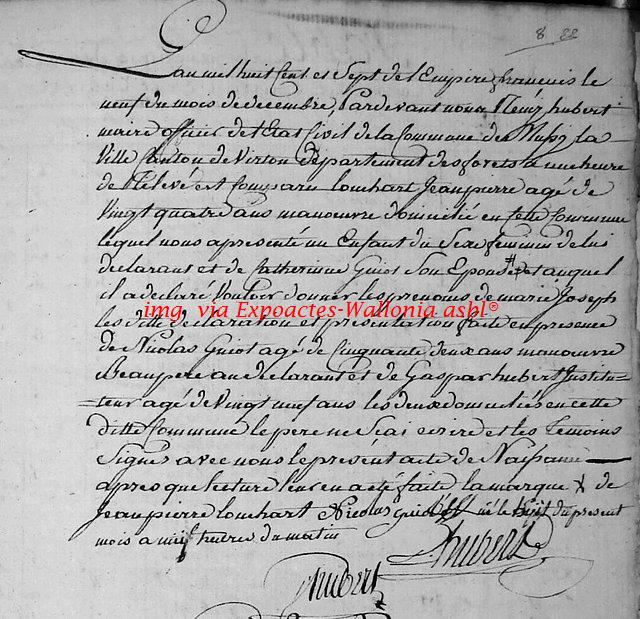 8 22
L'an mil huit Cent et Sept de l'Empire francois le
neuf du mois de decembre, Pardevant nous hubert
maire officier de l'Etat Civil de la Commune de Mussy la
Ville Canton de Virton departement des forets a une heure
de Relevé est Comparu Louchart Jeanpierre agé de
Vingt quatre ans manoeuvre domicilié en Cette Commune
lequel nous a présenté un Enfant du Sexe feminin de lui
declarant et de Catherinne Guiot Son Epouse # et auquel
il a declaré Vouloir donner les prenoms de marie Joseph
les ditte declaration et présentation faite en presence
de Nicolas Guiot agé de Cinquante deux ans manoeuvre
Beaupere au declarant et de Gaspar hubert Institu=
=teur agé de Vingt neuf ans les deux domiciliés en cette
ditte Commune le pere ne Scai ecrire et les Temoins
Signés avec nous le présent acte de Naissance
apres que lecture leur en a été faite la marque X de
Jeanpierre Louchart Nicolas Guiot # né le huit du present
mois a huit heures du matin
hubert
hubert
img. via Expoactes-Wallonia asbl®